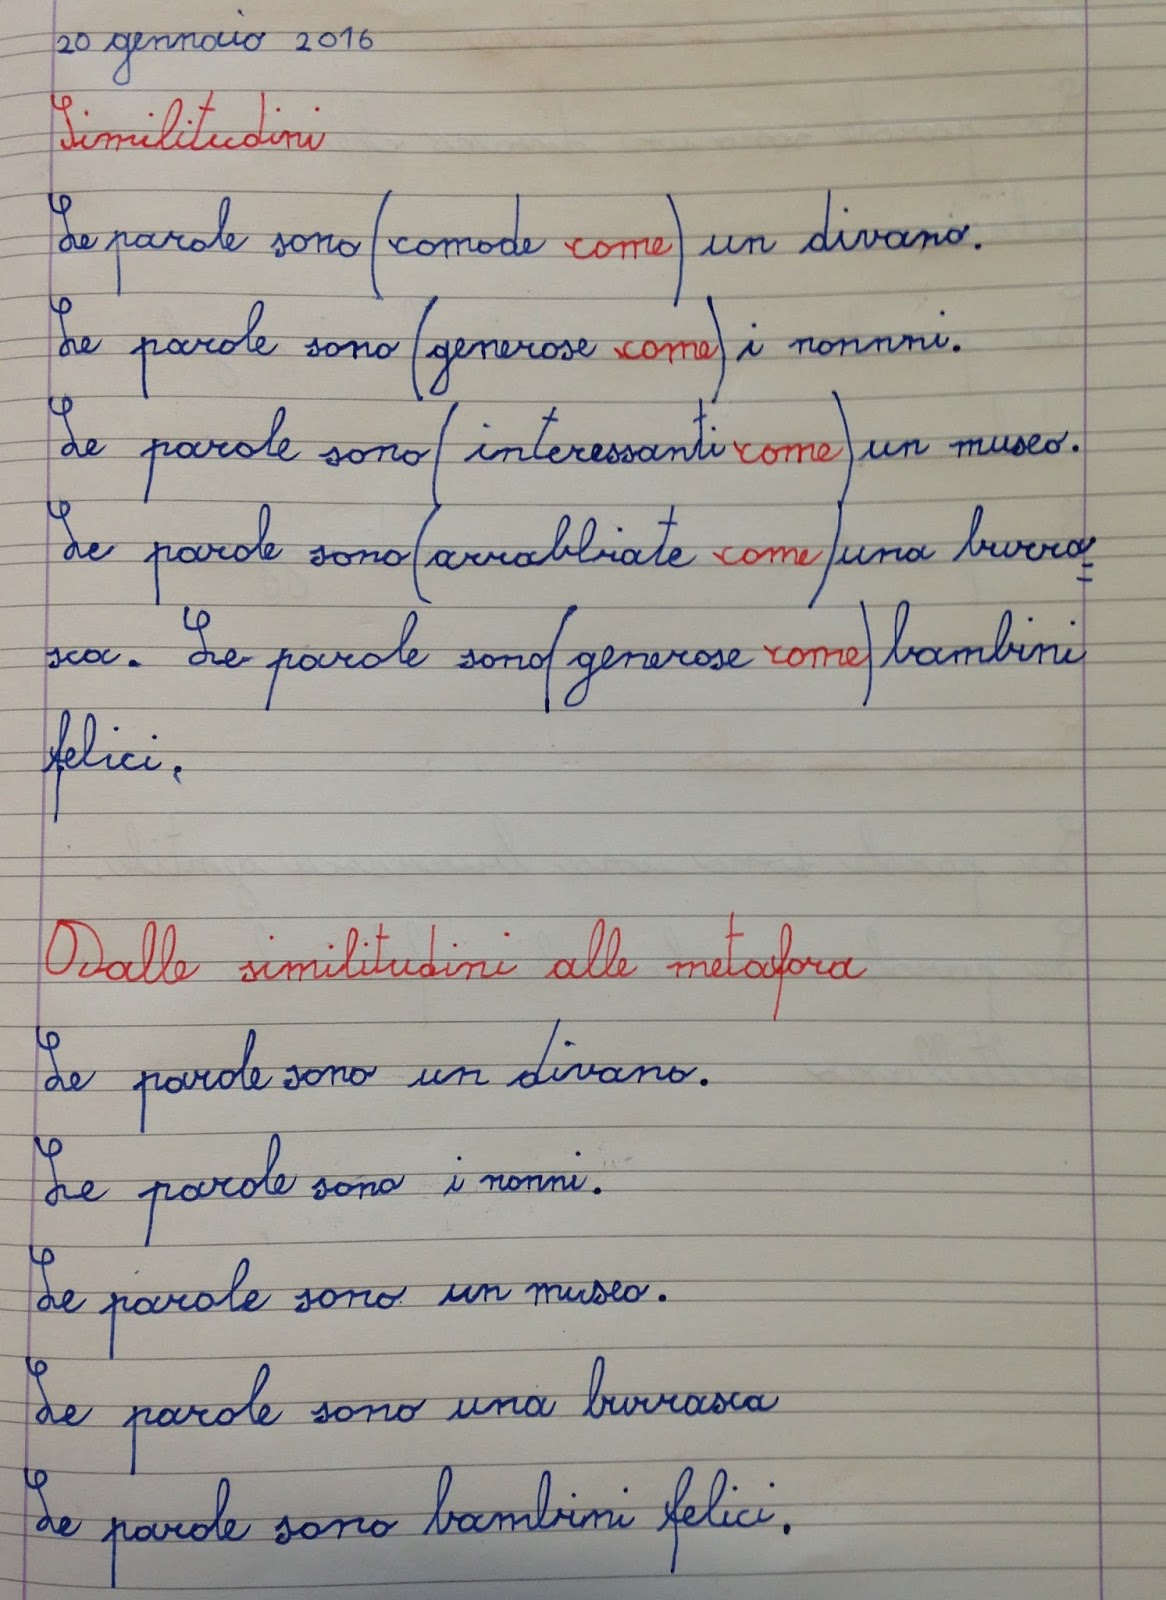 20 gennaio 2016
Similitudini
Le parole sono (comode come) un divano.
Le parole sono (generose come) i nonnni.
Le parole sono (interessanti come) un museo.
Le parole sono (arrabbiate come) una burra=
sca. Le parole sono (generose come) bambini
felici.
Dalle similitudini alle metafora
Le parole sono un divano.
Le parole sono i nonni.
Le parole sono un museo.
Le parole sono una burrasca
Le parole sono bambini felici.